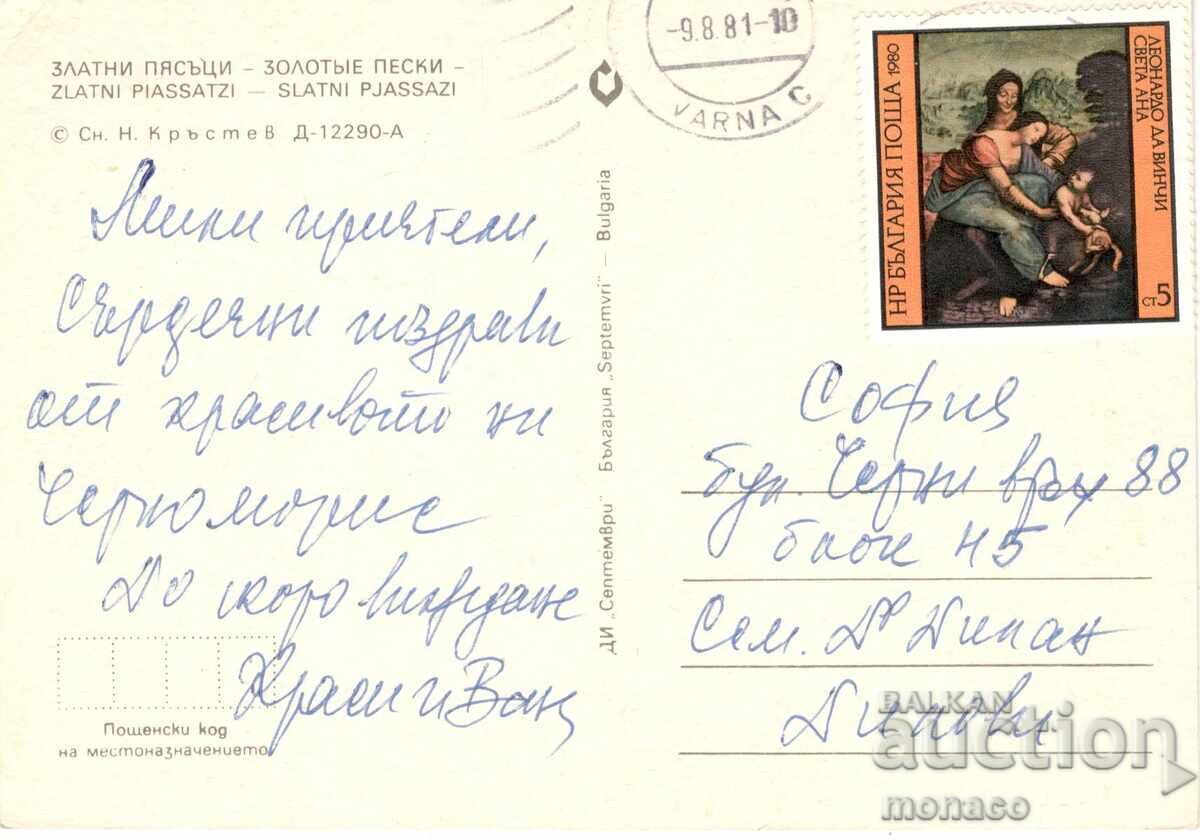 ЗЛАТНИ ПЯСЪЦИ – ЗОЛОТЫЕ ПЕСКИ –
ZLATNI PIASSATZI — SLATNI PJASSAZI
© Сн. Н. Кръстев Д-12290-А
Мили приятели,
Сърдечни поздрави
от красивото ни
Черноморие
До скоро виждане
Краси и Ван
Пощенски код
на местоназначението
ДИ „Септември" България „Septemvri" — Bulgaria
-9.8.81-10
VARNA C
НР БЪЛГАРИЯ ПОЩА 1980
ЛЕОНАРДО ДА ВИНЧИ
СВЕТА АНА
5 СТ
София
бул. Черни връх 88
блок 45
Сем. Д-р
BALKAN
auction
monaco